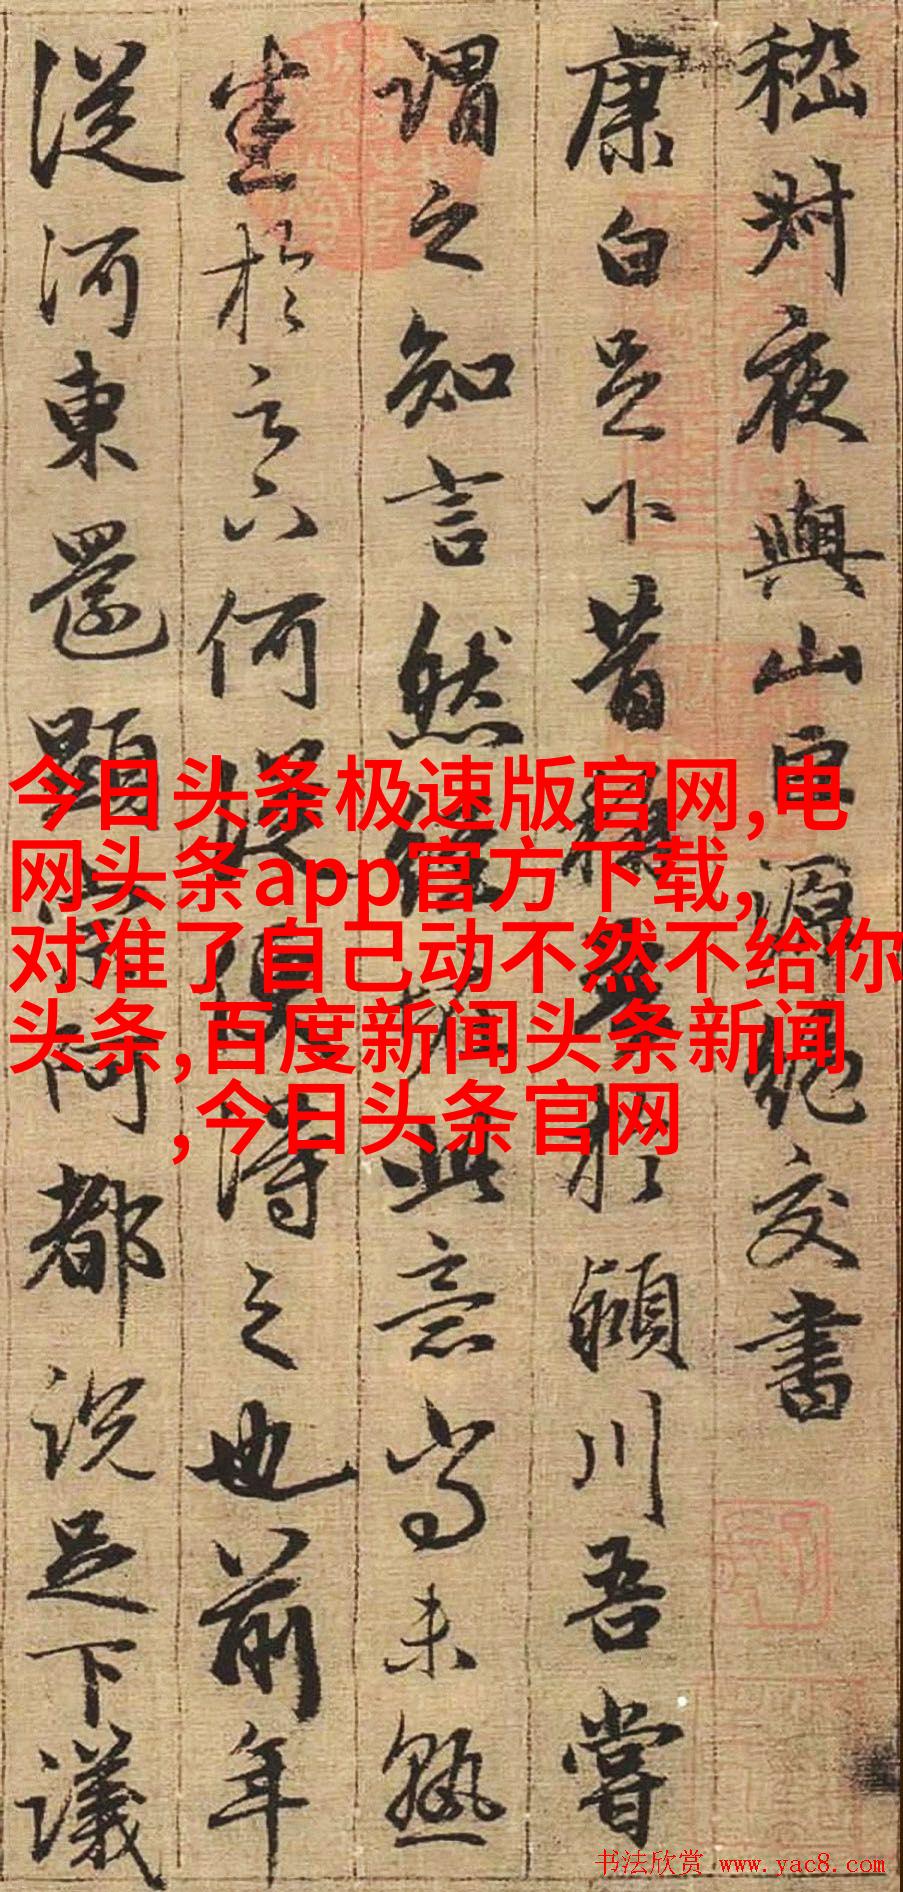 嵇叔夜與山巨源絕交書
康白足下昔稱吾於潁川吾嘗
謂之知言然經怪此意尚未熟
悉於足下何從便得之也前年
從河東還顯宗阿都說足下議
今日头条极速版官网,电
网头条app官方下载,
对准了自己动不然不给你
头条,百度新闻头条新闻
,今日头条官网
书法欣赏 www.yac8.com